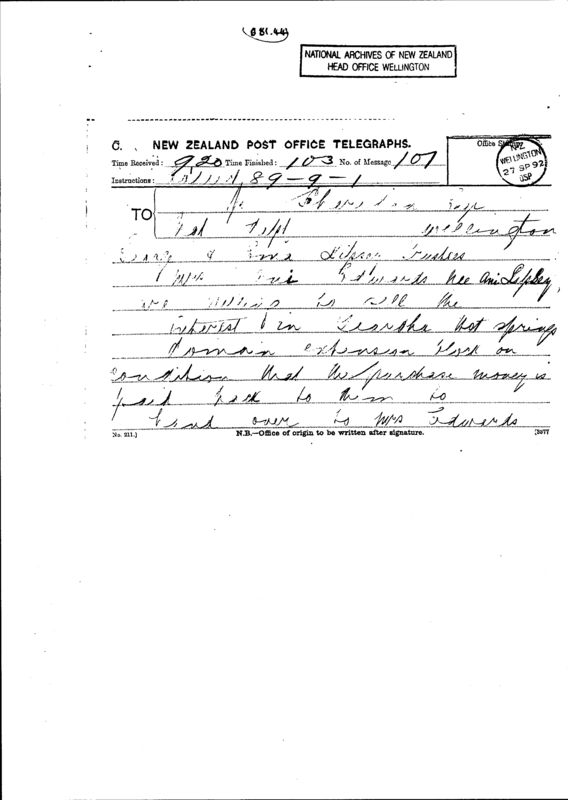 (B 81.44)
NATIONAL ARCHIVES OF NEW ZEALAND
HEAD OFFICE WELLINGTON
C. NEW ZEALAND POST OFFICE TELEGRAPHS.
Time Received: 920 Time Finished: 103 No. of Message 107
Office Stamp.
NZ
WELLINGTON
27 SP 92
Instructions: 89-9-1
TO P. Sheridan Esq
Wellington
&
Trustees
Mrs Edwards nee Ani
are willing to sell the
interest in Hot Springs
domain extension block on
condition that the purchase money is
paid back to them to
hand over to Mrs Edwards
No. 211.] N.B.—Office of origin to be written after signature.